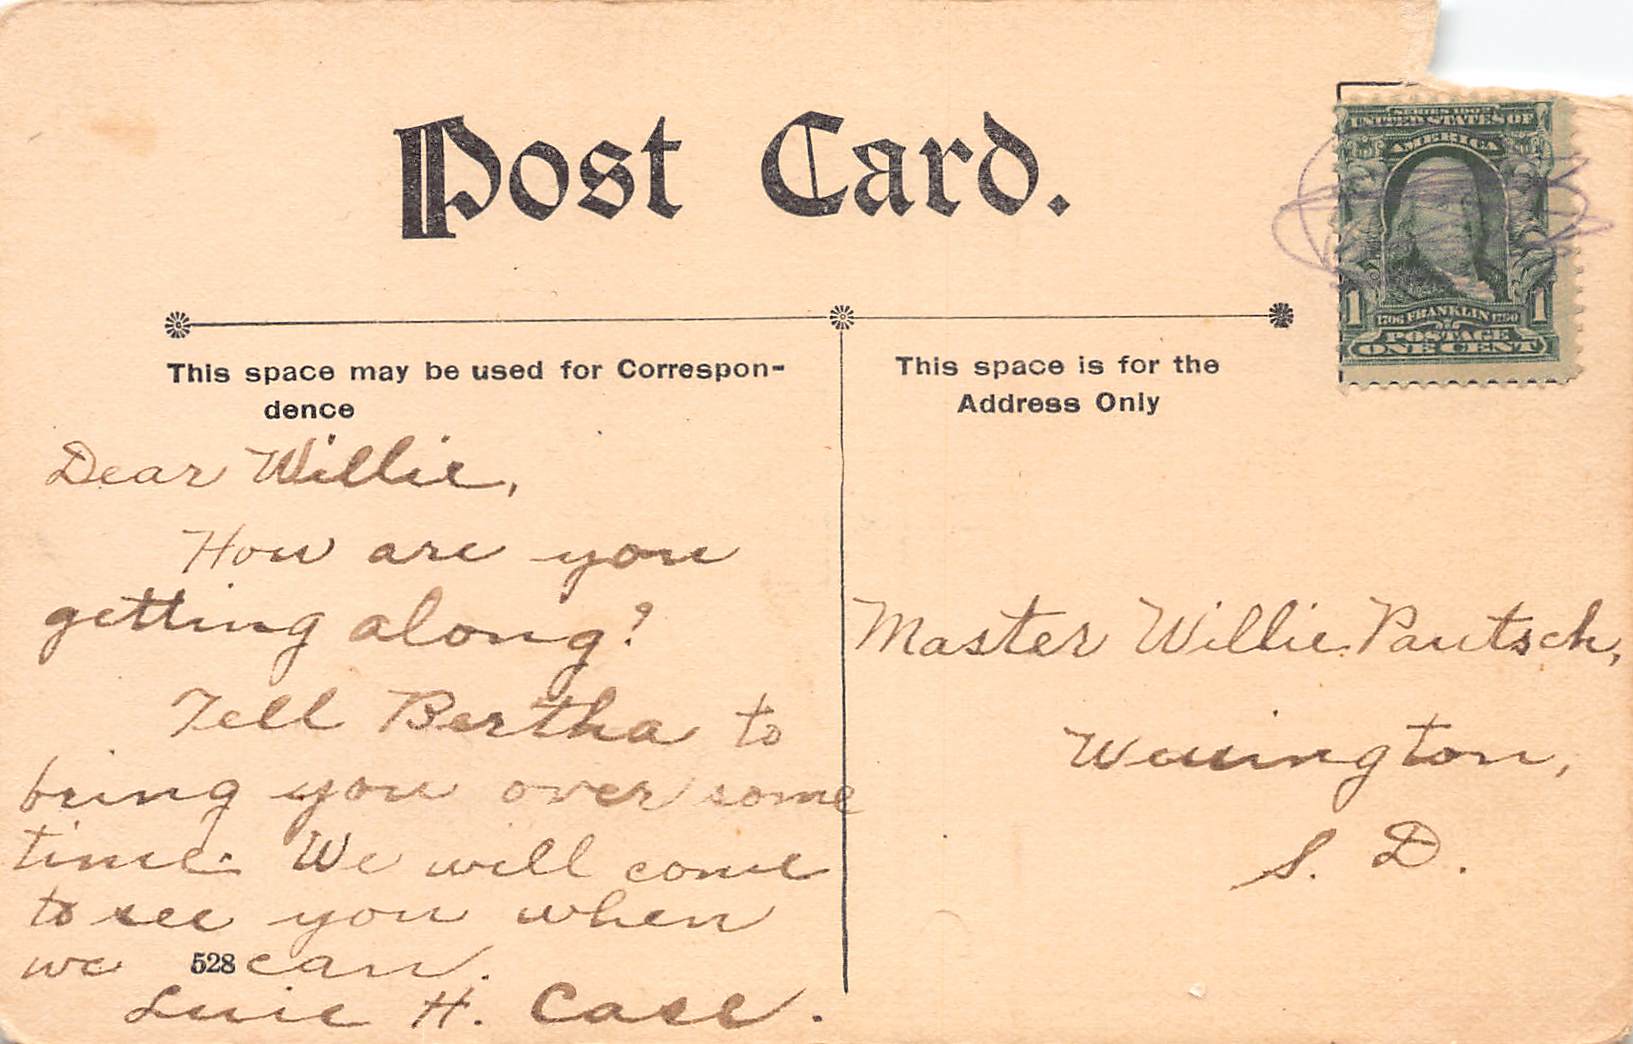 Post Card.
SERIES 1902
UNITED STATES OF
AMERICA
1 1
1706 FRANKLIN 1790
POSTAGE
ONE CENT
This space may be used for Correspon-
dence
Dear Willie,
How are you
getting along?
Tell Bertha to
bring you over some
time. We will come
to see you when
we can.
528
H. Case.
This space is for the
Address Only
Master Willie Pautsch,
S. D.